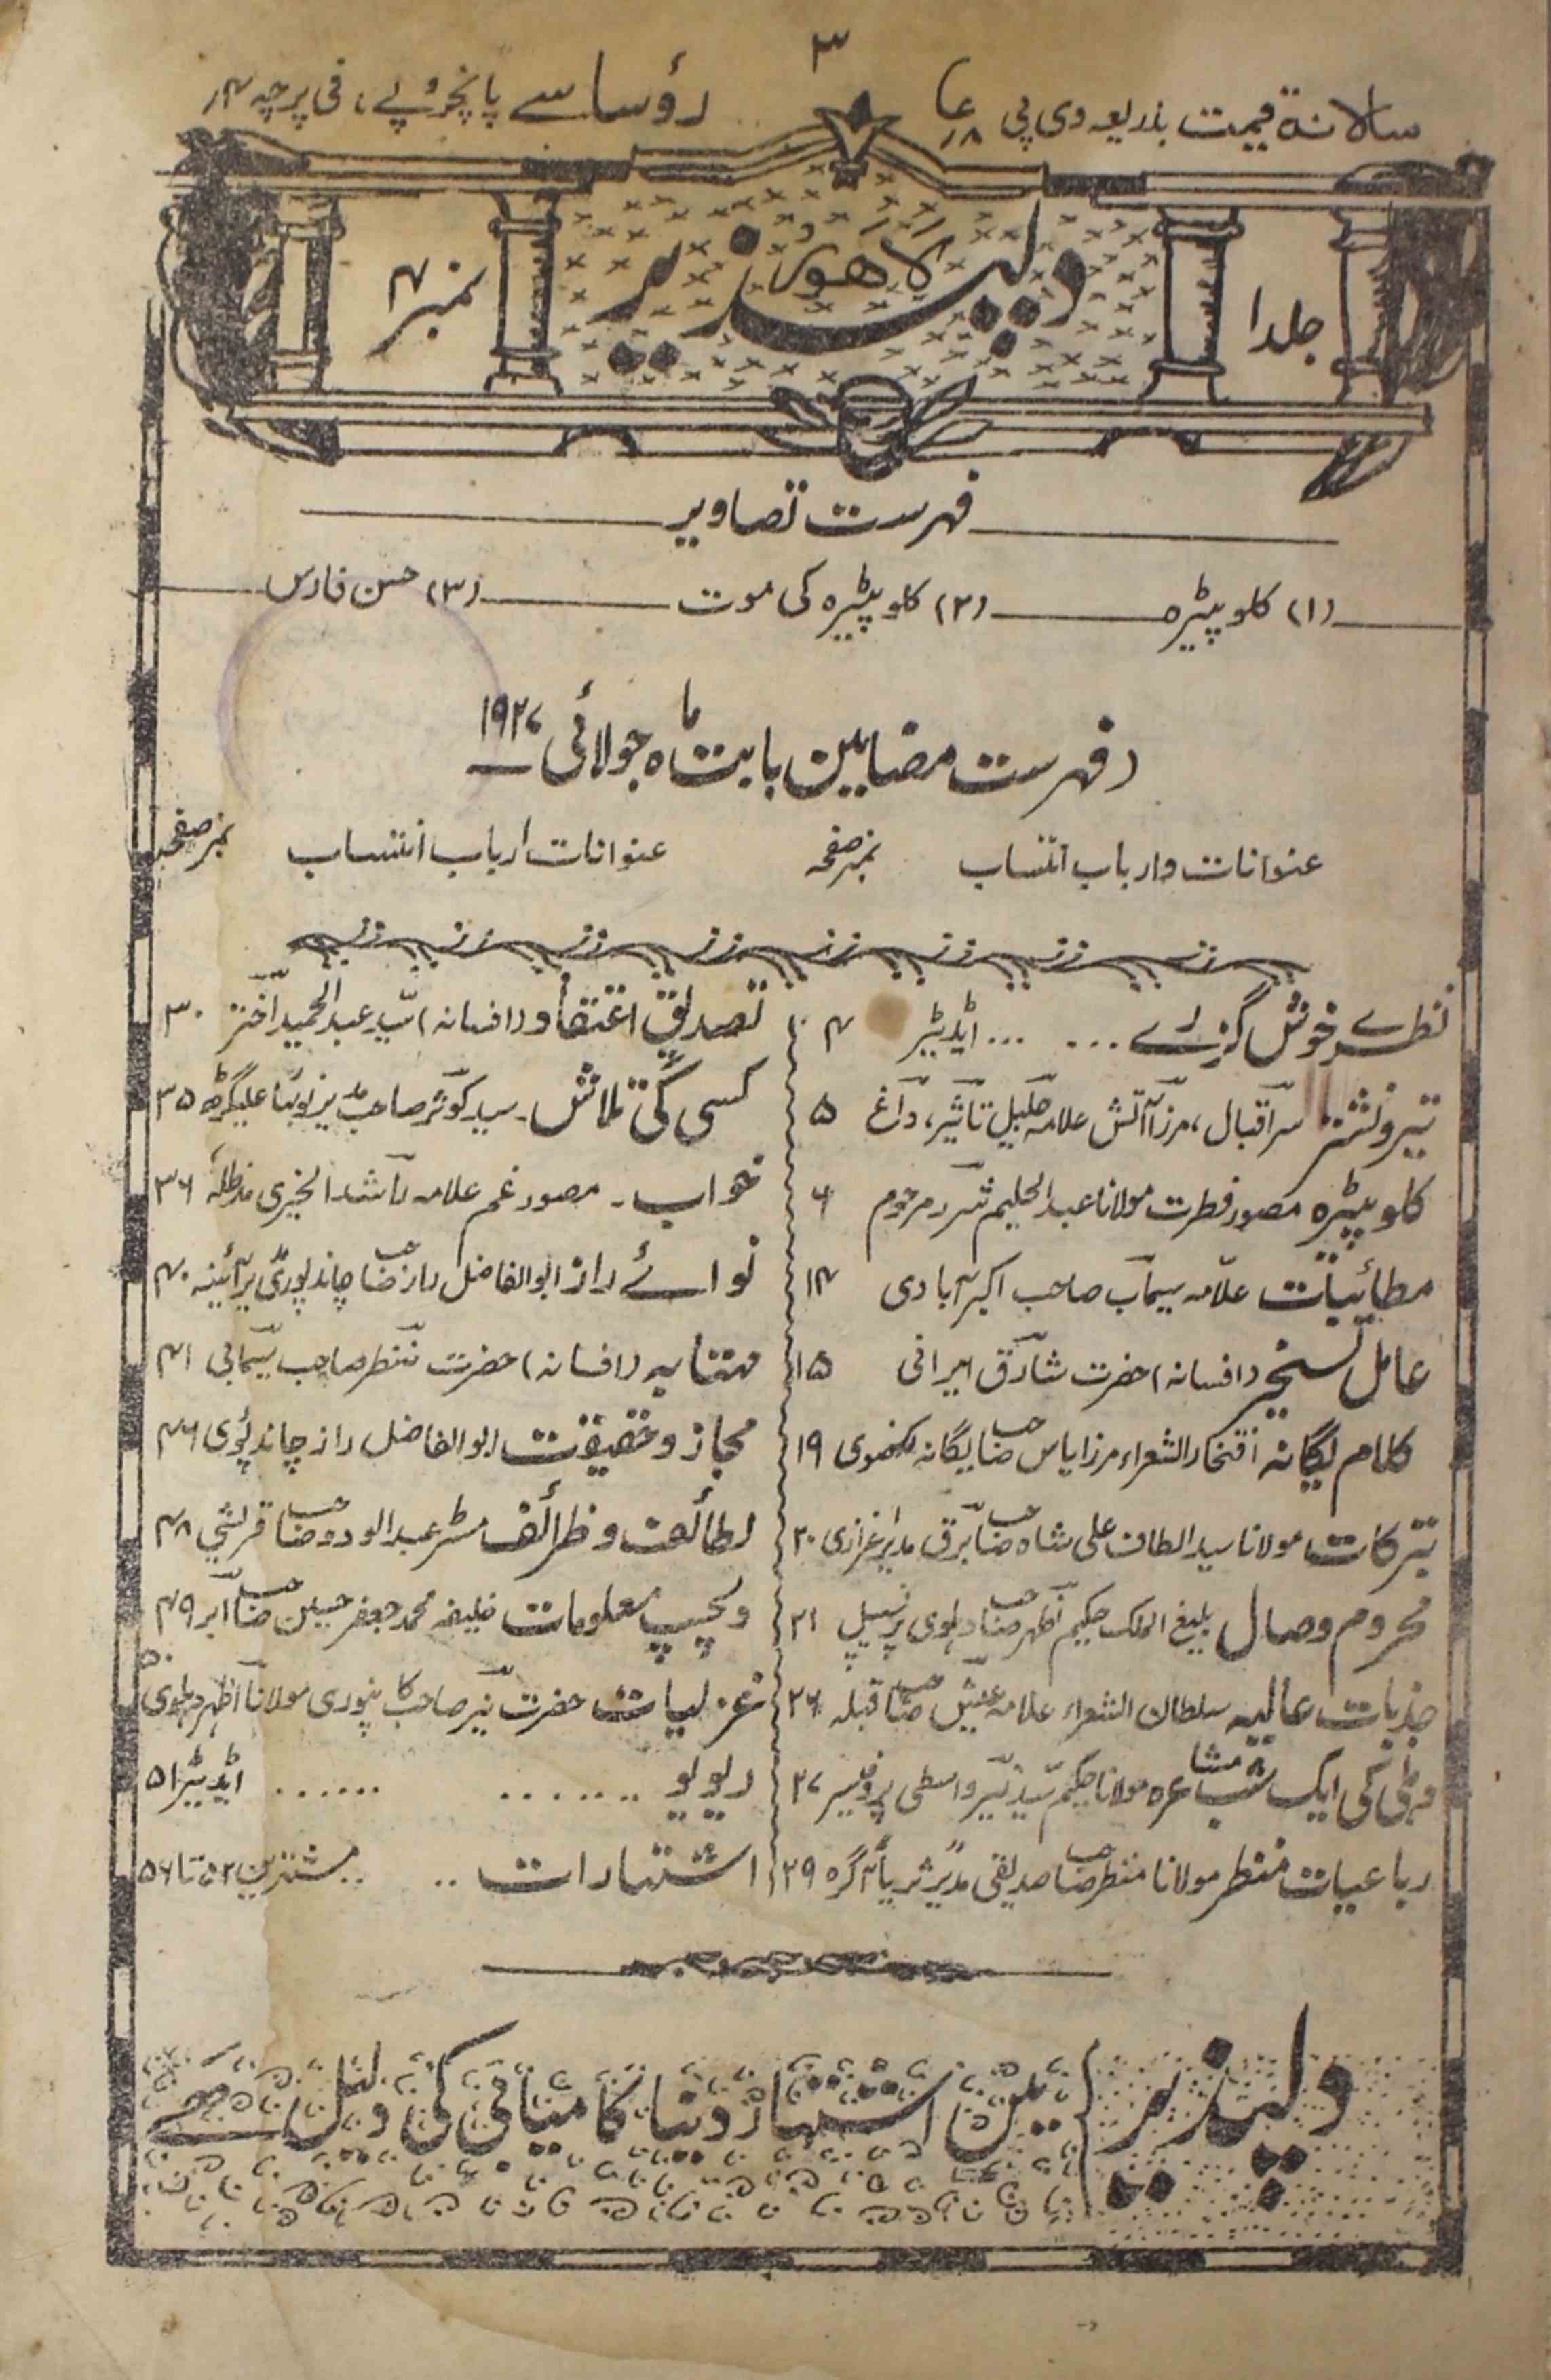 ۳
سالانہ قیمت بذریعہ وی پی
رؤسا سے پانچروپے، فی پرچہ ۴ر
جلد ۱
دلپذیر
لاہور
نمبر ۴
فہرست تصاویر
(۱) کلوپیٹرہ (۲) کلوپیٹرہ کی موت (۳) حسن فارس
فہرست مضامین بابت ماہ جولائی ۱۹۲۷
عنوانات وارباب انتساب نمبر صفحہ
نظرے خوش گزرے ... ... ایڈیٹر ۴
تیرونشتر سراقبال، مرزا آتش علامہ جلیل تاثیر، داغ ۵
کلوپیٹرہ مصور فطرت مولانا عبدالحلیم شرر مرحوم ۶
مطائبات علّامہ سیماب صاحب اکبرآبادی ۱۴
عامل تسخیر (افسانہ) حضرت شارق ایرانی ۱۵
کلام یگانہ افتخارالشعراء مرزا یاس صاحب یگانہ لکھنوی ۱۹
تبرکات مولانا سید الطاف علی شاہ صاحب برق مدیر غرازی ۲۰
محروم وصال بلیغ الملک حکیم اظہر صاحب دہلوی پرنسپل ۲۱
جذبات عالیہ سلطان الشعراء علامہ عیش صاحب قبلہ ۲۶
دہلی کی ایک شب مشاعرہ مولانا حکیم سید نیّر واسطی پروفیسر ۲۷
رباعیات منتظر مولانا منتظر صاحب صدیقی مدیر ثریا آگرہ ۲۹
عنوانات ارباب انتساب نمبر صفحہ
تصدیق اعتقاد (افسانہ) سّید عبدالحمید اختر ۳۰
کسی کی تلاش۔ سید کوثر صاحب علیگڑھ ۳۵
خواب۔ مصور غم علامہ راشد الخیری مدظلہٗ ۳۶
نوائے راز ابوالفاضل راز صاحب چاندپوری ۴۰
متشابہ (افسانہ) حضرت منتظر صاحب سیمابی ۴۱
مجاز وحقیقت ابوالفاضل راز چاندپوری ۴۶
لطائف وظرائف مسٹر عبدالودود صاحب قریشی ۴۸
دلچسپ معلومات خلیفہ محمد جعفر حسین صاحب ابر ۴۹
غزلیات حضرت نیر صاحب کانپوری مولانا اظہر دہلوی ۵۰
ریویو ....... ...... ایڈیٹر ۵۱
اشتہارات .. .. مشتہرین ۵۲ تا ۵۶
دلپذیر میں اشتہار دینا کامیابی کی دلیل ہے